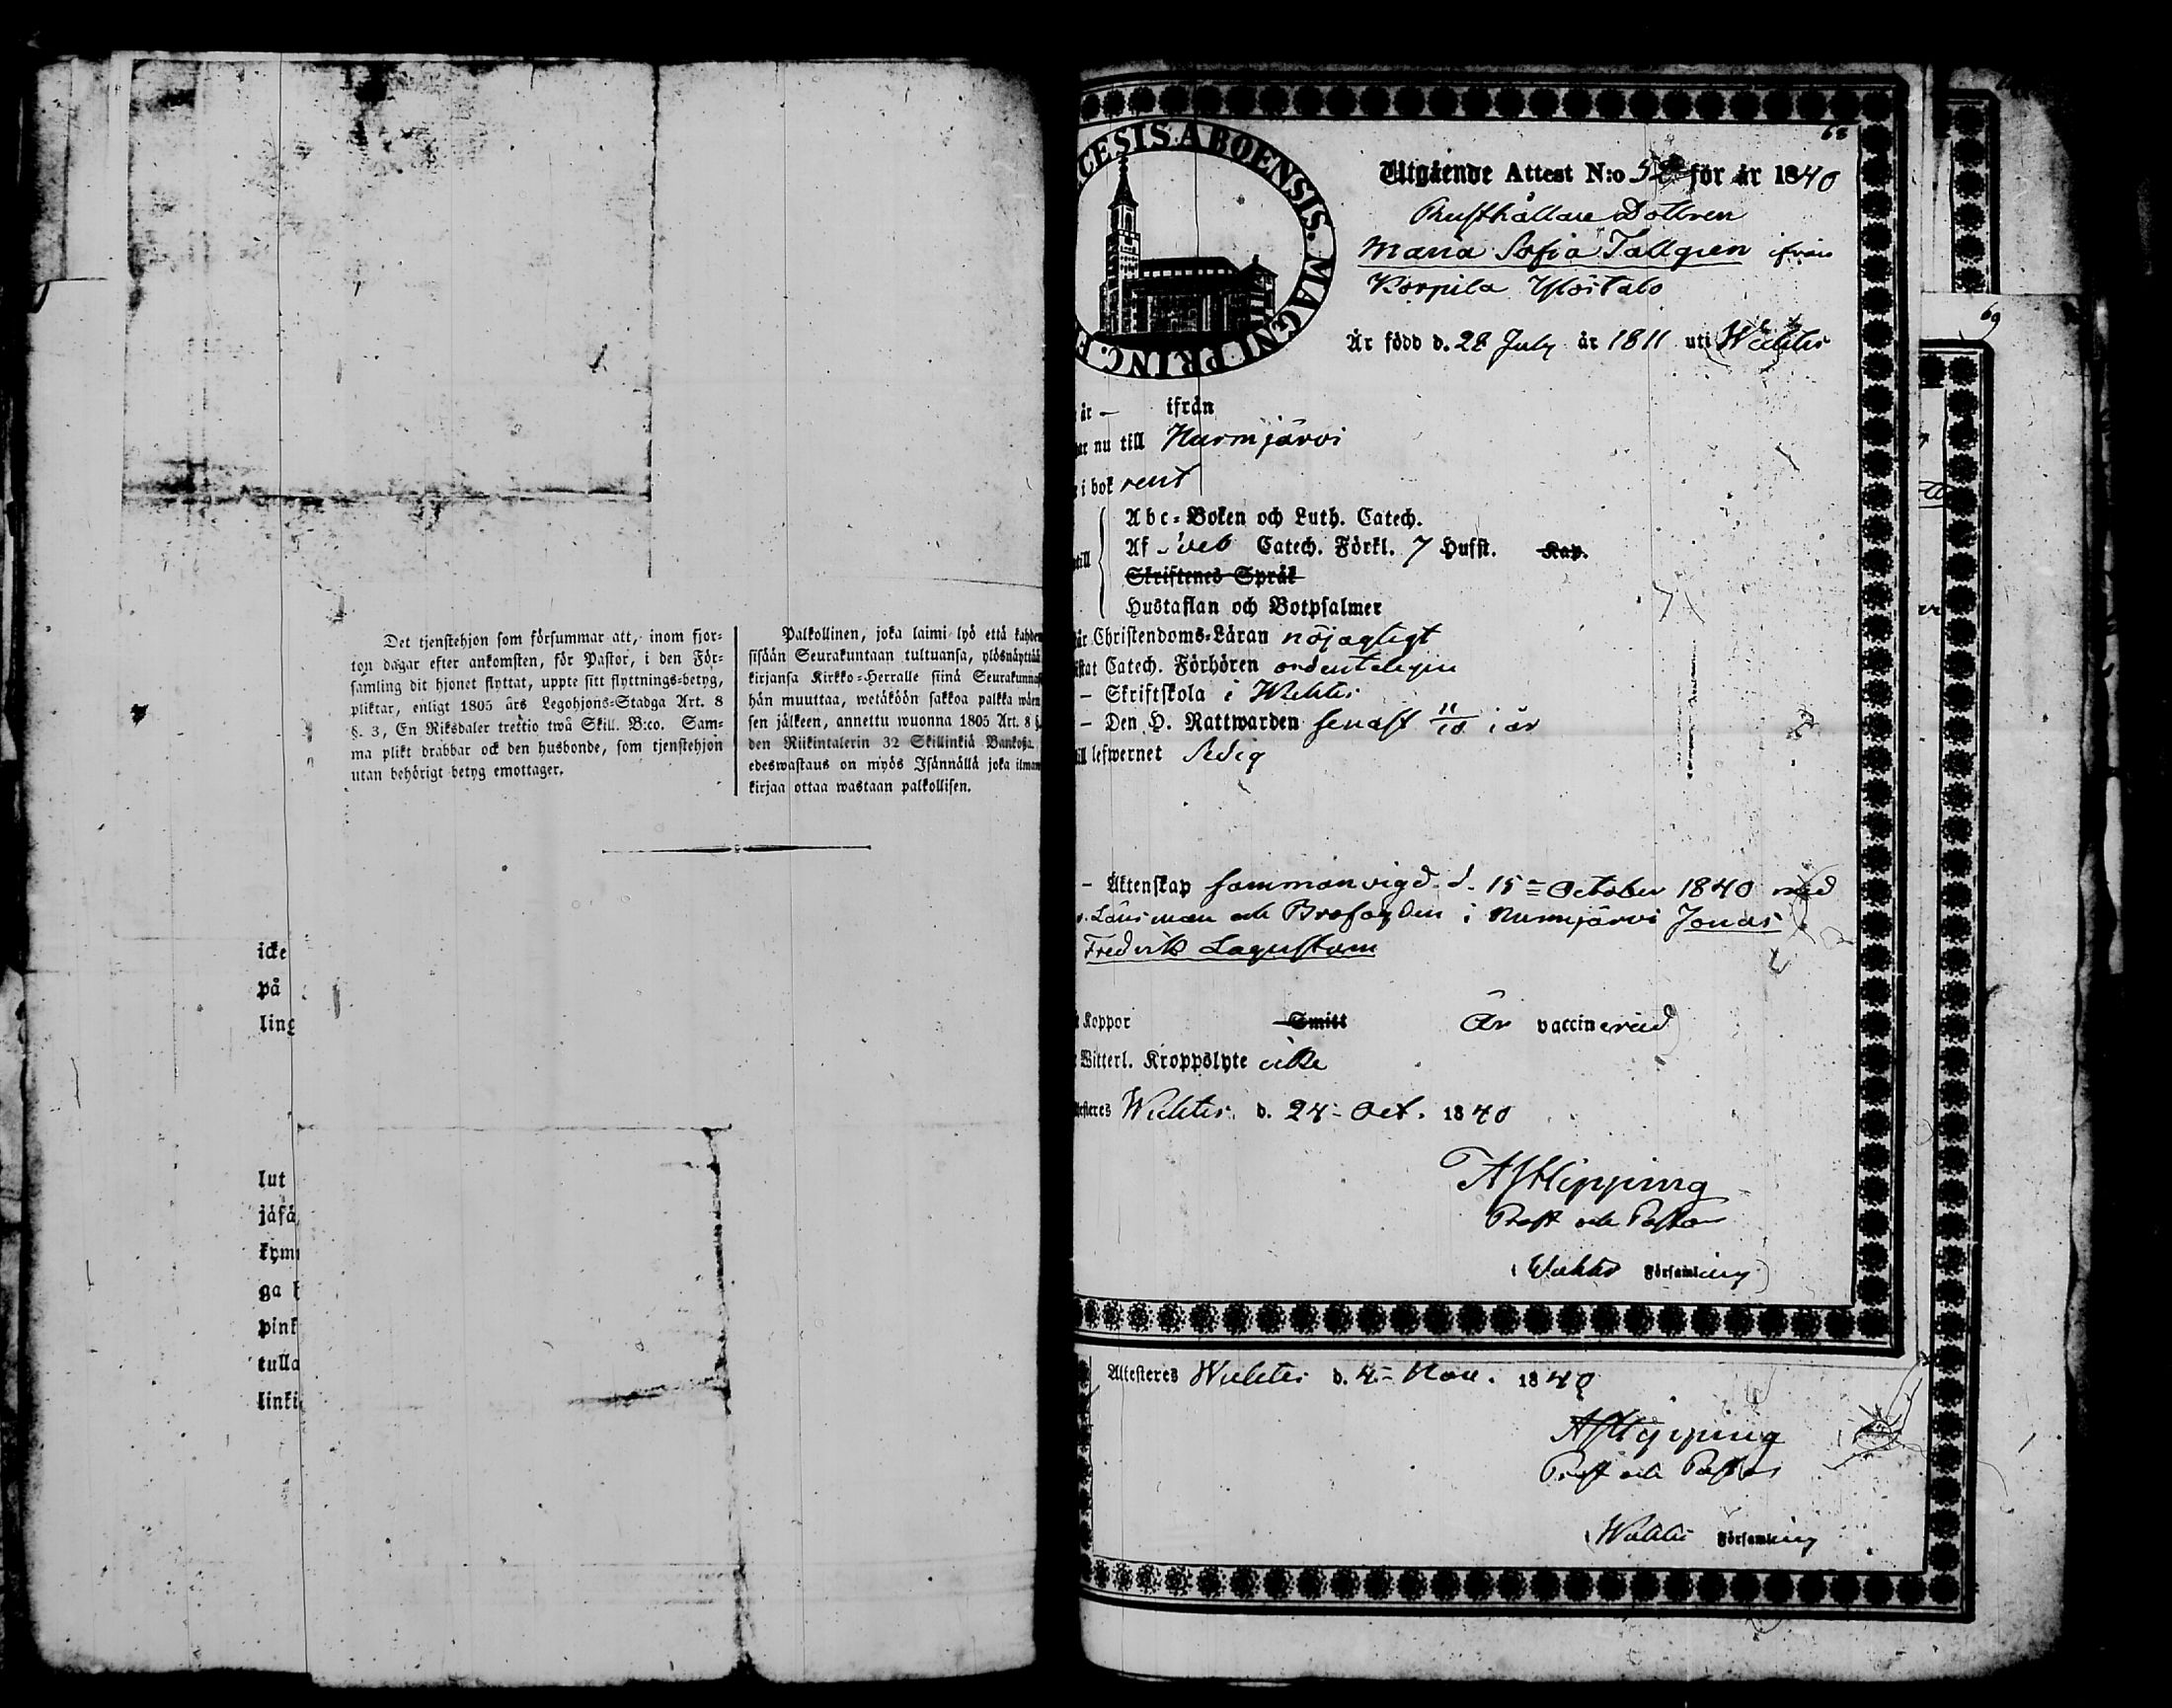 Det tjenstehjon som försummar att, inom fjor-
ton dagar efter ankomsten, för Pastor, i den För-
samling dit hjonet flyttat, uppte sitt flyttnings-betyg,
pliktar, enligt 1805 års Legohjons-Stadga Art. 8
§. 3, En Riksdaler trettio twå Skill. B:co. Sam-
ma plikt drabbar ock den husbonde, som tjenstehjon
utan behörigt betyg emottager.
Palkollinen, joka laimi lyö että kahden
sisään Seurakuntaan tultuansa, ylösnäyttää
kirjansa Kirkko-Herralle siinä Seurakunnas
hän muuttaa, wetäköön sakkoa palkka wäen
sen jälkeen, annettu wuonna 1805 Art. 8 §.
den Riikintalerin 32 Skillinkiä Bankosa.
edeswastaus on myös Isännällä joka ilman
kirjaa ottaa wastaan palkollisen.
icke
på
ling
lut
jäfä
kym
ga
pink
tulla
linki
68
CESIS. ABOENSIS. MAGNI PRINC. F
Utgående Attest N:o 52 för år 1840
Rusthållare Dottren
Maria Sofia Tallgren ifrån
Korpila Ylöstalo
År född d. 28 July år 1811 uti Wichtis
år — ifrån
nu till Nurmjärvi
i bok rent
Abc-Boken och Luth. Catech.
till Af Sveb Catech. Förkl. 7 Hufst. Kap.
Skriftenes Språk
Hustaflan och Botpsalmer
Christendoms-Läran nöjagtigt
Catech. Förhören ordenteligen
— Skriftskola i Wichtis
— Den H. Nattwarden senast 11/10 i år
till lefwernet Sedig
— Äktenskap sammanvigd d. 15 October 1840 med
v. Länsman och Brofogden i Nurmjärvi Jonas
Fredrik Lagerstam
Koppor Smitt Är vaccinerad
Witterl. Kroppslyte icke
Wichtis d. 24 Oct. 1840
AJHipping
Prost och Pastor
i Wichtis Församling
69
Attesteres Wichtis d. 4 Nov. 1840
AJHipping
Prost och Pastor
i Wichtis Församling